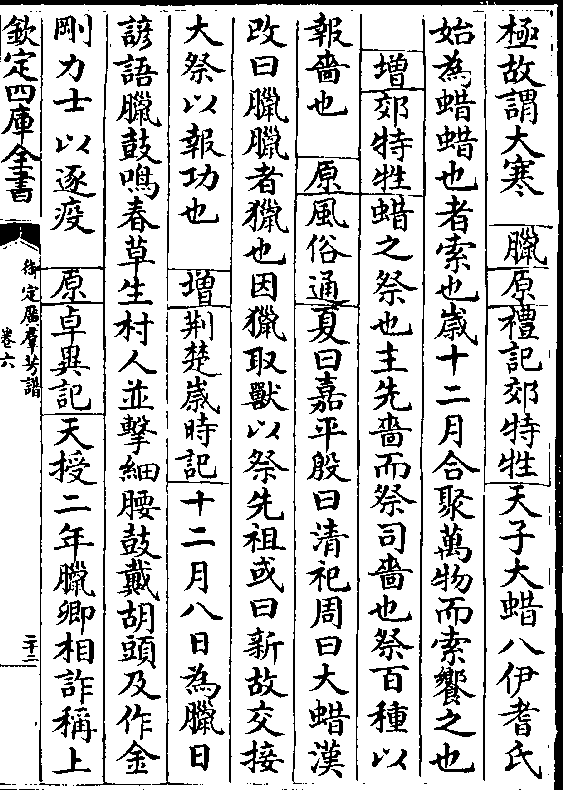 極故謂大寒　臘原禮記郊特牲天子大蜡八伊耆氏
始為蜡蜡也者索也歲十二月合聚萬物而索饗之也
增郊特牲蜡之祭也主先嗇而祭司嗇也祭百種以
報嗇也　原風俗通夏曰嘉平殷曰清祀周曰大蜡漢
改曰臘臘者獵也因獵取獸以祭先祖或曰新故交接
大祭以報功也　增荆楚歲時記十二月八日為臘日
諺語臘鼓鳴春草生村人並擊細腰鼓戴胡頭及作金
剛力士以逐疫　原卓異記天授二年臘卿相詐稱上
欽定四庫全書
御定廣羣芳譜
卷六
二十二